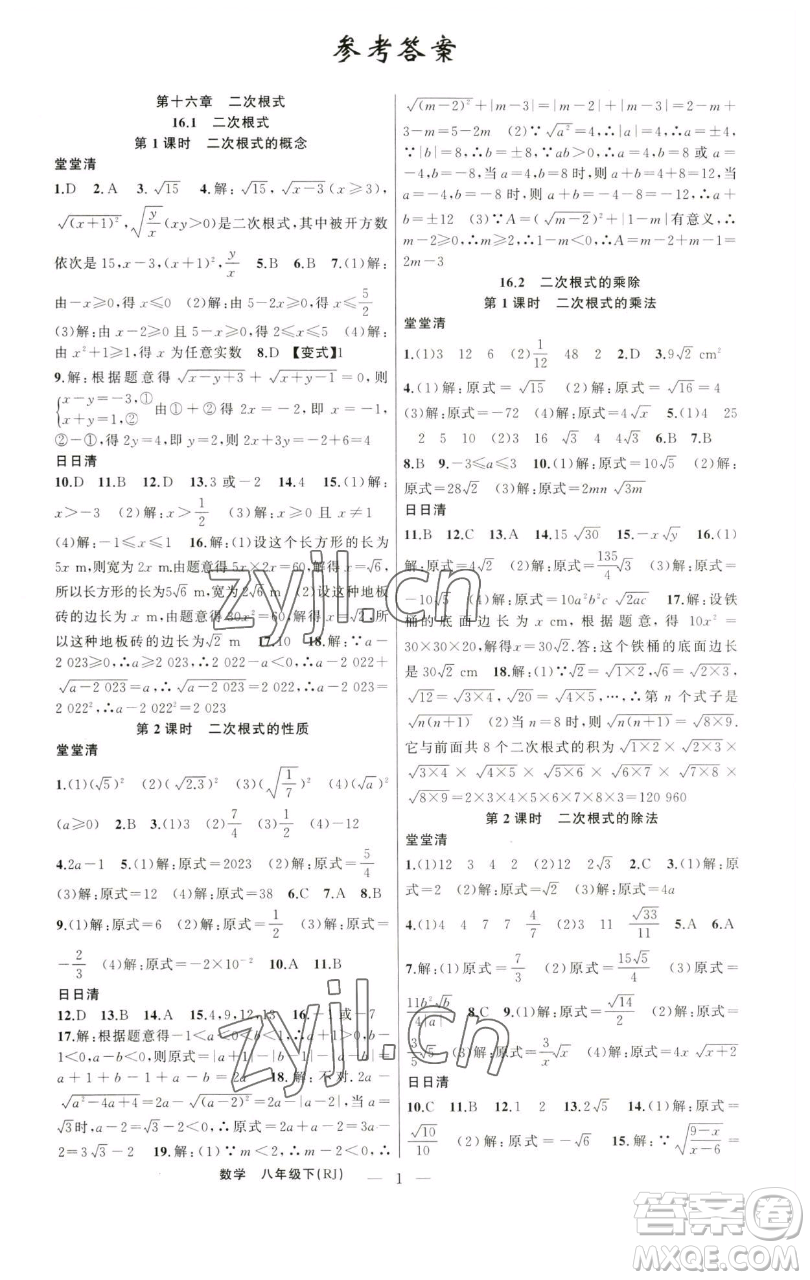 参考答案
第十六章 二次根式
16.1 二次根式
第1课时 二次根式的概念
堂堂清
1.D 2.A 3.√15 4.解:√15,√(x-3)(x≥3),
√((x+1)²),√(y/x)(xy>0)是二次根式,其中被开方数
依次是15,x-3,(x+1)²,y/x 5.B 6.B 7.(1)解:
由-x≥0,得x≤0 (2)解:由5-2x≥0,得x≤5/2
(3)解:由2-x≥0且5-x≥0,得x≤2 (4)解:
由x²+1≥1,得x为任意实数 8.D 【变式】1
9.解:根据题意得√(x-y+3)+√(x+y-1)=0,则
{x-y=-3,① x+y=1,② 由①+②得2x=-2,即x=-1,
②-①得2y=4,即y=2,则2x+3y=-2+6=4
日日清
10.D 11.B 12.D 13.3或-2 14.4 15.(1)解:
x>-3 (2)解:x>1/2 (3)解:x≥0且x≠1
(4)解:-1≤x≤4 16.解:(1)设这个长方形的长为
5x m,则宽为2x m,由题意得5x·2x=60,解得x=√6,
所以长方形的长为5√6 m,宽为2√6 m (2)设这种地板
砖的边长为x m,由题意得30x²=60,解得x=√2,所
以这种地板砖的边长为√2 m 17.10 18.解:∵a-
2 023≥0,∴a≥2 023,∴2 022-a<0,∴a-2022+
√(a-2 023)=a,∴√(a-2 023)=2 022,∴a-2 023=
2 022²,∴a-2 022²=2 023
第2课时 二次根式的性质
堂堂清
1.(1)(√5)² (2)(√2.3)² (3)(√(1/7))² (4)(√a)²
(a≥0) 2.B 3.(1)3 (2)7/4 (3)1/2 (4)-12
4.2a-1 5.(1)解:原式=2023 (2)解:原式=5/4
(3)解:原式=12 (4)解:原式=38 6.C 7.A 8.B
9.(1)解:原式=6 (2)解:原式=1/2 (3)解:原式=
-2/3 (4)解:原式=-2×10⁻² 10.A 11.B
日日清
12.D 13.B 14.A 15.4,9,12,13 16.-1或-7
17.解:根据题意得-1<a<0<b<1,∴a+1>0,b-
1<0,a-b<0,则原式=|a+1|-|b-1|-|a-b|=
a+1+b-1+a-b=2a 18.解:不对.2a-
√(a²-4a+4)=2a-√((a-2)²)=2a-|a-2|,当a=
√3时,a-2=√3-2<0,∴原式=2a+a-2=3a-2=
3√3-2 19.解:(1)∵m<2,∴m-2<0,m-3<0,∴
√((m-2)²)+|m-3|=|m-2|+|m-3|=2-m+
3-m=5-2m (2)∵√(a²)=4,∴|a|=4,∴a=±4,
∵|b|=8,∴b=±8,∵ab>0,∴a=4,b=8或a=
-4,b=-8,当a=4,b=8时,则a+b=4+8=12,当
a=-4,b=-8时,则a+b=-4-8=-12,∴a+
b=±12 (3)∵A=(√(m-2))²+|1-m|有意义,∴
m-2≥0,∴m≥2,∴1-m<0,∴A=m-2+m-1=
2m-3
16.2 二次根式的乘除
第1课时 二次根式的乘法
堂堂清
1.(1)3 12 6 (2)1/12 48 2 2.D 3.9√2 cm²
4.(1)解:原式=√15 (2)解:原式=√16=4
(3)解:原式=-72 (4)解:原式=4√x 5.(1)4 25
2 5 10 (2)16 3 4 √3 4√3 6.B 7.B
8.B 9.-3≤a≤3 10.(1)解:原式=10√5 (2)解:
原式=28√2 (3)解:原式=2mn√(3m)
日日清
11.B 12.C 13.A 14.15√30 15.-x√y 16.(1)
解:原式=4√2 (2)解:原式=135/4√3 (3)解:原式=
-10√5 (4)解:原式=10a²b²c√(2ac) 17.解:设铁
桶的底面边长为x cm,根据题意,得10x²=
30×30×20,解得x=30√2.答:这个铁桶的底面边长
是30√2 cm 18.解:(1)∵√2=√(1×2),√6=√(2×3),
√12=√(3×4),√20=√(4×5),…,∴第n个式子是
√(n(n+1)) (2)当n=8时,√(n(n+1))=√(8×9).
它与前面共8个二次根式的积为√(1×2)×√(2×3)×
√(3×4)×√(4×5)×√(5×6)×√(6×7)×√(7×8)×
√(8×9)=1×2×3×4×5×6×7×8×3=120 960
第2课时 二次根式的除法
堂堂清
1.(1)12 3 4 2 (2)12 2√3 2.C 3.(1)解:原
式=2 (2)解:原式=√3 (3)解:原式=4a
4.(1)4 7 7 4/7 (2)3 11 √33/11 5.A 6.A
7.(1)解:原式=7/3 (2)解:原式=15√5/4 (3)解:原式=
11b²√b/4|a| 8.C 9.(1)解:原式=√14/2 (2)解:原式=
3/5√5 (3)解:原式=3/x√x (4)解:原式=4x√(x+2)
日日清
10.C 11.B 12.1 2 13.2√5 14.(1)解:原式=
√10/10 (2)解:原式=-√6 15.解:∵√((9-x)/(x-6))=
数学 八年级下(RJ)
— 1 —
zyjl.cn
zyjl.cn
答案圈
MXQE.COM